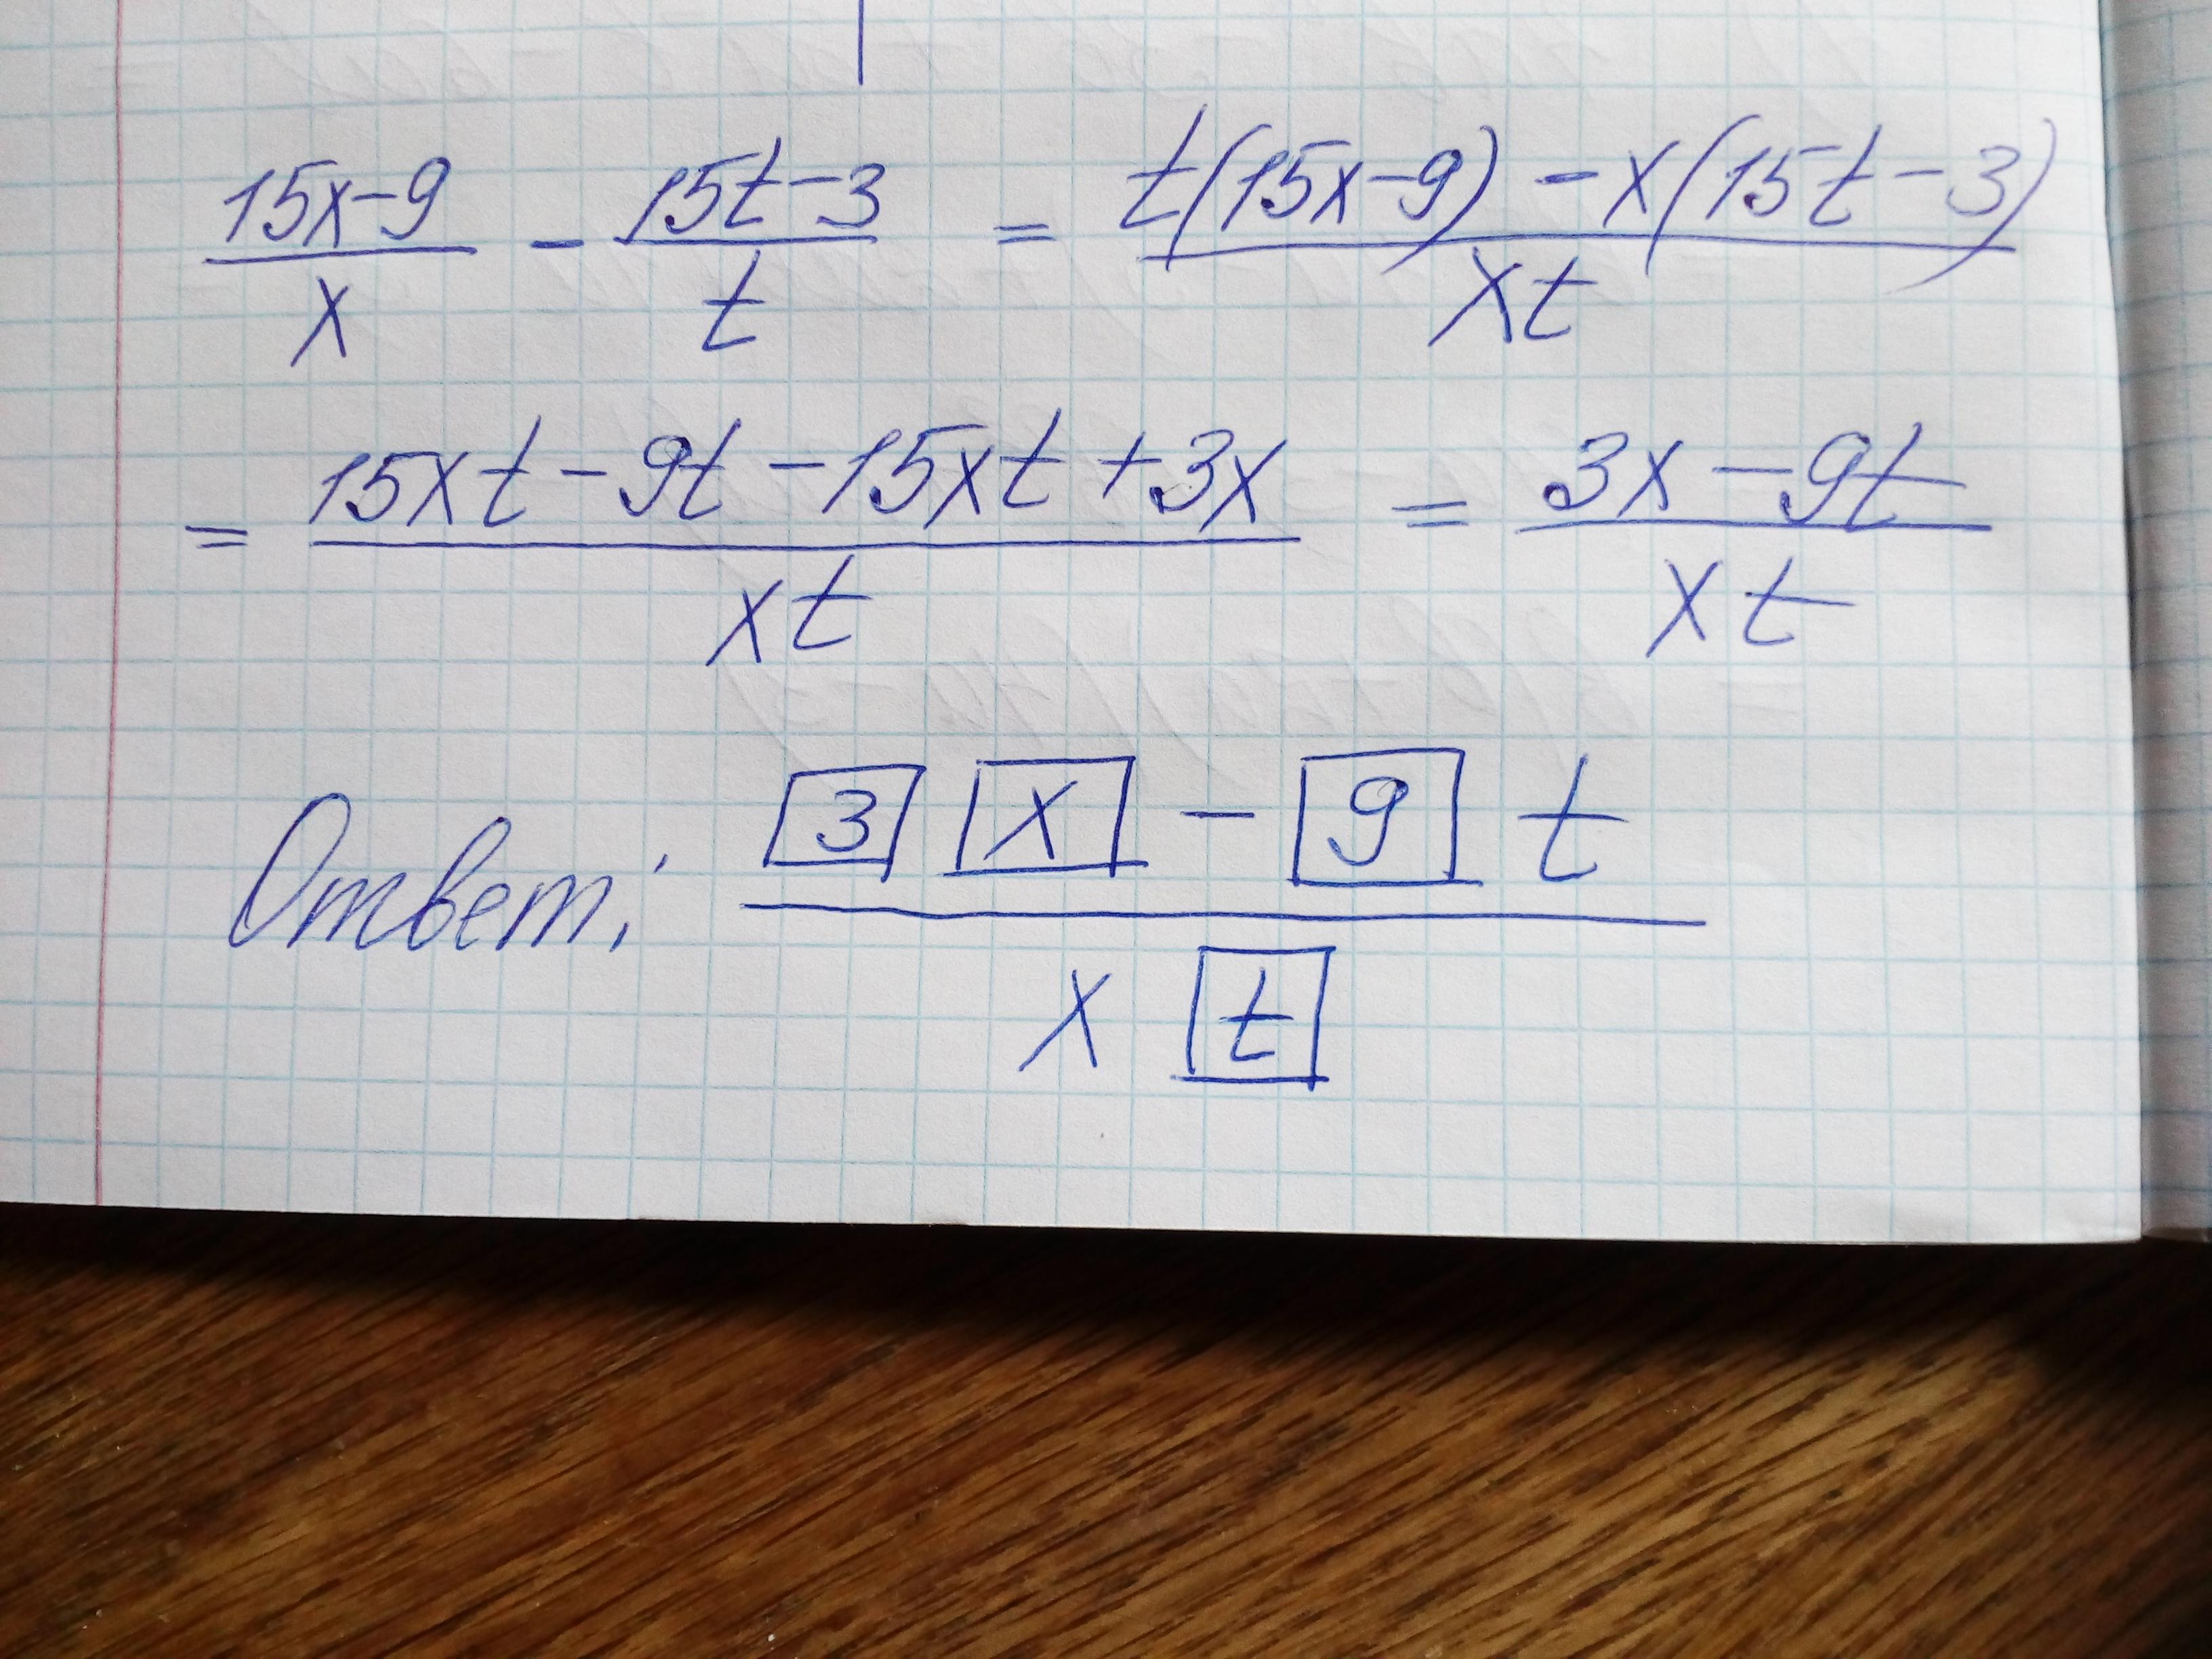 15x-9/x - 15t-3/t = t(15x-9) - x(15t-3)/xt
= 15xt-9t-15xt+3x/xt = 3x-9t/xt
Ответ: 3 x - 9 t / x t